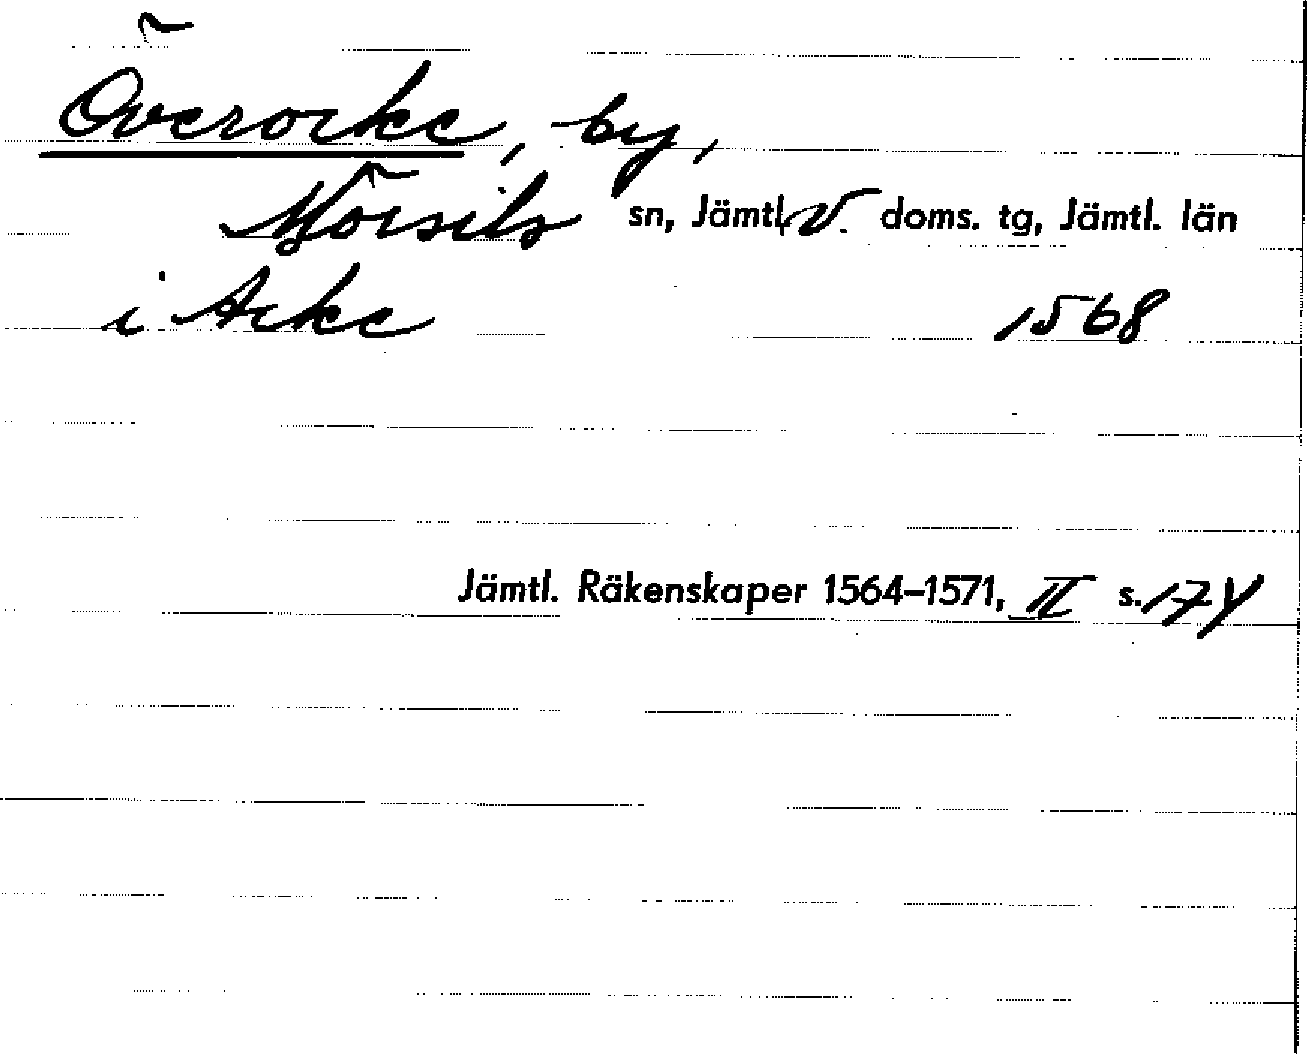 Överocke, by,
Mörsils sn, Jämtl. V. doms. tg, Jämtl. län
i Acke 1568
Jämtl. Räkenskaper 1564–1571, II s. 174